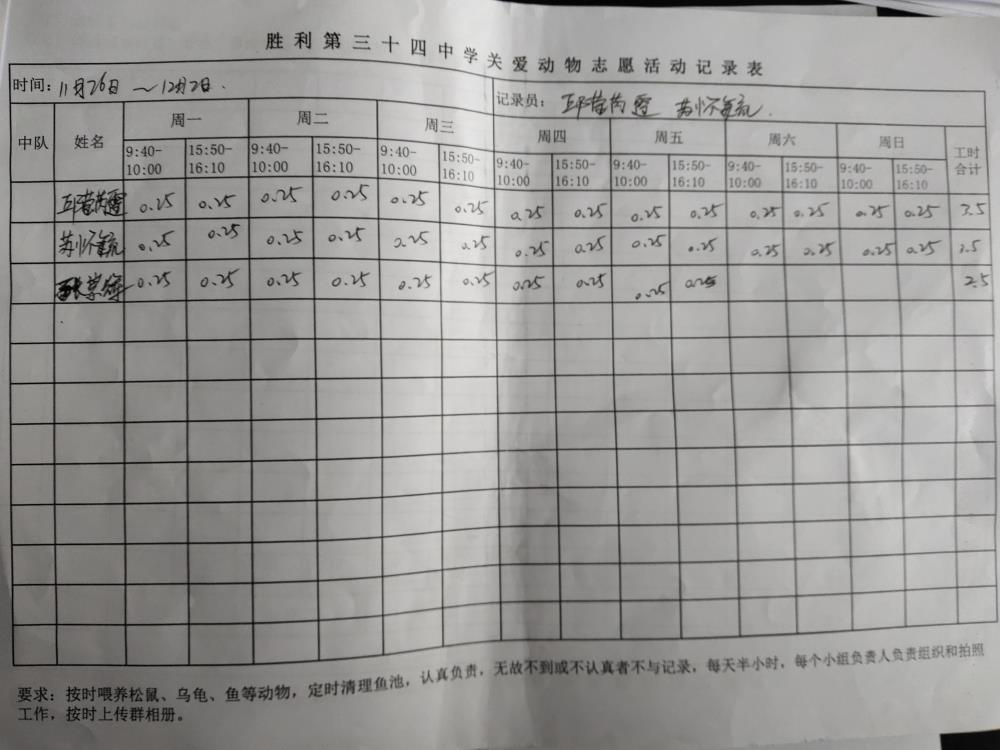 胜利第三十四中学关爱动物志愿活动记录表
时间：11月26日 ～12月2日. 记录员：
中队 姓名 周一 周二 周三 周四 周五 周六 周日 工时合计
9:40-10:00 15:50-16:10 9:40-10:00 15:50-16:10 9:40-10:00 15:50-16:10 9:40-10:00 15:50-16:10 9:40-10:00 15:50-16:10 9:40-10:00 15:50-16:10 9:40-10:00 15:50-16:10
0.25 0.25 0.25 0.25 0.25 0.25 0.25 0.25 0.25 0.25 0.25 0.25 0.25 0.25 3.5
苏怀 0.25 0.25 0.25 0.25 0.25 0.25 0.25 0.25 0.25 0.25 0.25 0.25 0.25 0.25 3.5
0.25 0.25 0.25 0.25 0.25 0.25 0.25 0.25 0.25 0.25 2.5
要求：按时喂养松鼠、乌龟、鱼等动物，定时清理鱼池，认真负责，无故不到或不认真者不与记录，每天半小时，每个小组负责人负责组织和拍照
工作，按时上传群相册。